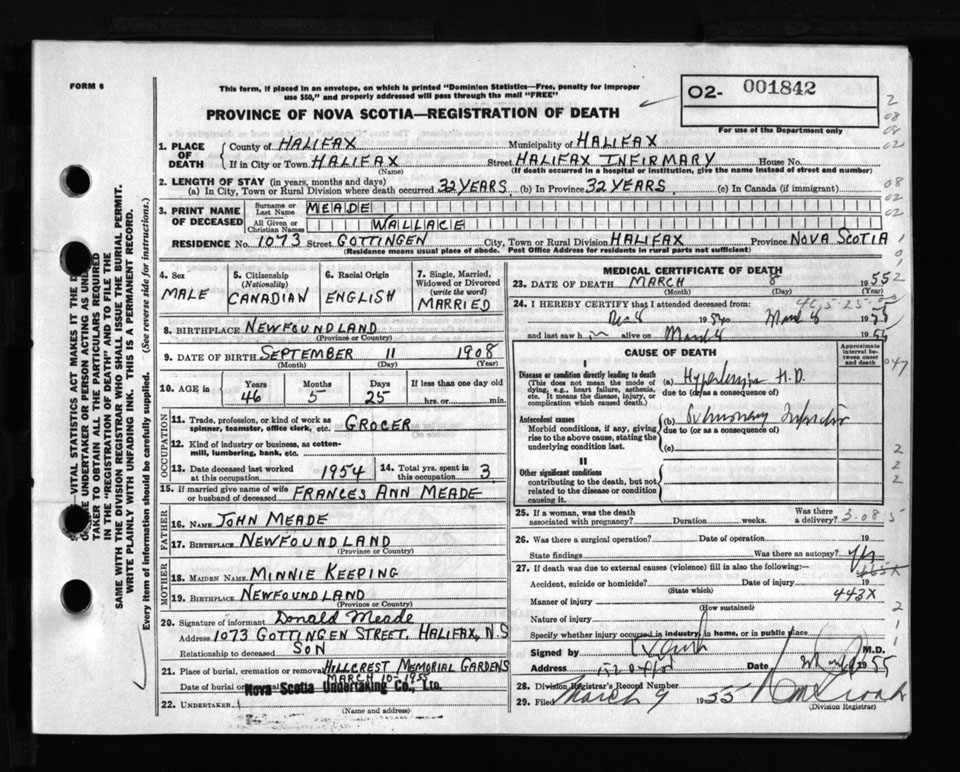 FORM 6
This form, if placed in an envelope, on which is printed "Dominion Statistics—Free, penalty for improper
use $50," and properly addressed will pass through the mail "FREE"
O2- 001842
For use of the Department only
PROVINCE OF NOVA SCOTIA—REGISTRATION OF DEATH
1. PLACE OF DEATH
County of HALIFAX Municipality of HALIFAX
If in City or Town HALIFAX Street HALIFAX INFIRMARY House No.
(Name) (If death occurred in a hospital or institution, give the name instead of street and number)
2. LENGTH OF STAY (in years, months and days)
(a) In City, Town or Rural Division where death occurred 32 YEARS (b) In Province 32 YEARS (c) In Canada (if immigrant)
3. PRINT NAME OF DECEASED
Surname or Last Name MEADE
All Given or Christian Names WALLACE
RESIDENCE No. 1073 Street GOTTINGEN City, Town or Rural Division HALIFAX Province NOVA SCOTIA
(Residence means usual place of abode. Post Office Address for residents in rural parts not sufficient)
4. Sex MALE
5. Citizenship (Nationality) CANADIAN
6. Racial Origin ENGLISH
7. Single, Married, Widowed or Divorced (write the word) MARRIED
8. BIRTHPLACE NEWFOUNDLAND
(Province or Country)
9. DATE OF BIRTH SEPTEMBER 11 1908
(Month) (Day) (Year)
10. AGE in Years 46 Months 5 Days 25 If less than one day old hrs. or min.
OCCUPATION
11. Trade, profession, or kind of work as spinner, teamster, office clerk, etc. GROCER
12. Kind of industry or business, as cotton-mill, lumbering, bank, etc.
13. Date deceased last worked at this occupation 1954
14. Total yrs. spent in this occupation 3
15. If married give name of wife or husband of deceased FRANCES ANN MEADE
FATHER
16. NAME JOHN MEADE
17. BIRTHPLACE NEWFOUNDLAND
(Province or Country)
MOTHER
18. MAIDEN NAME MINNIE KEEPING
19. BIRTHPLACE NEWFOUNDLAND
(Province or Country)
20. Signature of informant Donald Meade
Address 1073 GOTTINGEN STREET, HALIFAX, N.S
Relationship to deceased SON
21. Place of burial, cremation or removal HILLCREST MEMORIAL GARDENS
Date of burial or MARCH 10-1955
Nova Scotia Undertaking Co., Ltd.
22. UNDERTAKER
(Name and address)
MEDICAL CERTIFICATE OF DEATH
23. DATE OF DEATH MARCH 8 1955
(Month) (Day) (Year)
24. I HEREBY CERTIFY that I attended deceased from:
Dec 8 19 to March 8 1955
and last saw h im alive on March 8 1955
CAUSE OF DEATH
Approximate interval between onset and death
I
Disease or condition directly leading to death
(This does not mean the mode of dying, e.g., heart failure, asthenia, etc. It means the disease, injury, or complication which caused death.)
(a) Hypertensive H.D.
due to (or as a consequence of)
Antecedent causes
Morbid conditions, if any, giving rise to the above cause, stating the underlying condition last.
(b) Pulmonary Infarction
due to (or as a consequence of)
(c)
II
Other significant conditions
contributing to the death, but not related to the disease or condition causing it.
25. If a woman, was the death associated with pregnancy? Duration weeks. Was there a delivery?
26. Was there a surgical operation? Date of operation 19
State findings Was there an autopsy? Yes
27. If death was due to external causes (violence) fill in also the following:—
Accident, suicide or homicide? Date of injury 19
(State which)
443X
Manner of injury
(How sustained)
Nature of injury
Specify whether injury occurred in industry, in home, or in public place
Signed by M.D.
Address Date 1955
28. Division Registrar's Record Number
29. Filed March 9 1955
(Division Registrar)
VITAL STATISTICS ACT MAKES IT THE
UNDERTAKER OR PERSON ACTING AS UNDER-
TAKER TO OBTAIN ALL THE PARTICULARS REQUIRED
IN THE "REGISTRATION OF DEATH" AND TO FILE THE
SAME WITH THE DIVISION REGISTRAR WHO SHALL ISSUE THE BURIAL PERMIT.
WRITE PLAINLY WITH UNFADING INK. THIS IS A PERMANENT RECORD.
Every item of information should be carefully supplied. (See reverse side for instructions.)